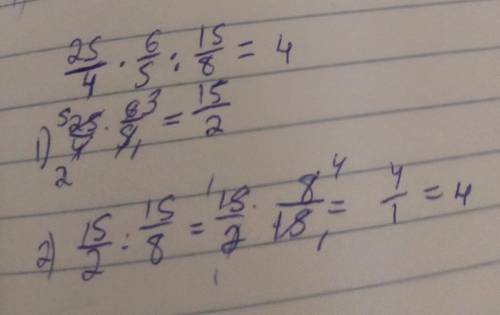 25/4 · 6/5 : 15/8 = 4
1) 25/4 · 6/5 = 15/2
2) 15/2 : 15/8 = 15/2 · 8/15 = 4/1 = 4